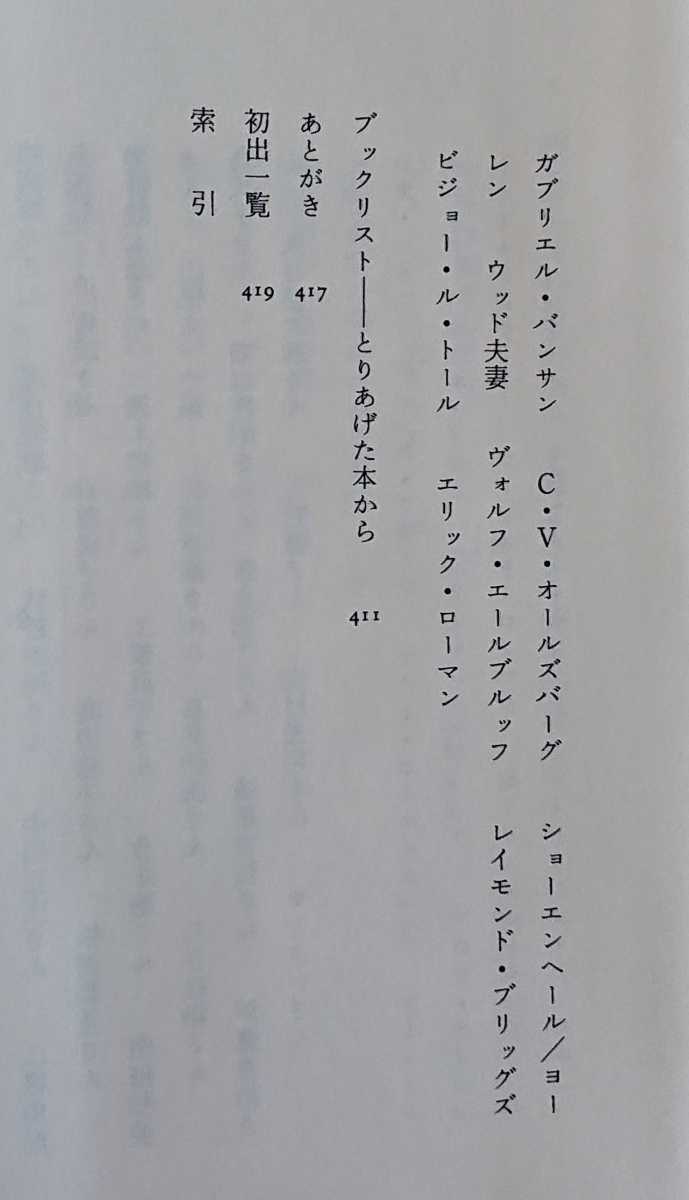 ガブリエル・バンサン　C・V・オールズバーグ　ショーエンヘール／ヨー
レン　ウッド夫妻　ヴォルフ・エールブルッフ　レイモンド・ブリッグズ
ビジョー・ル・トール　エリック・ローマン
ブックリスト――とりあげた本から　411
あとがき　417
初出一覧　419
索　引